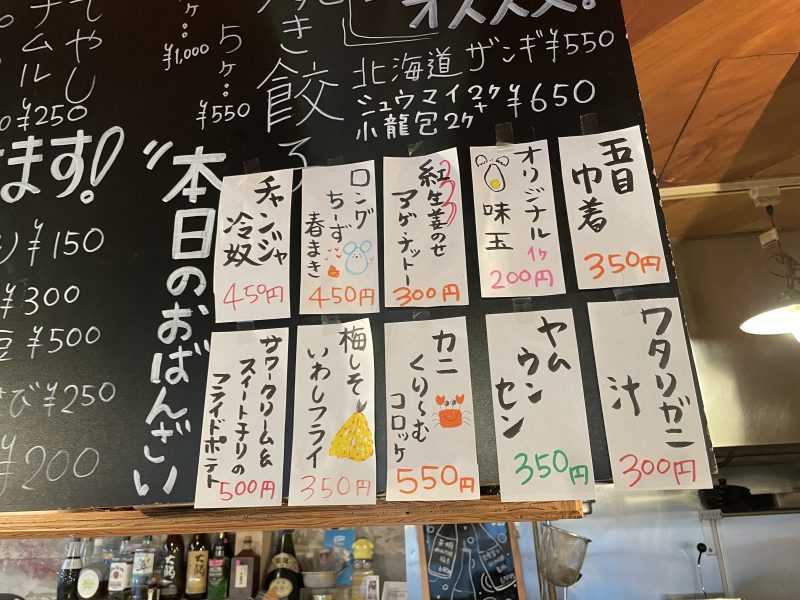 ¥1,000
5ヶ…
¥550
オススメ!
北海道ザンギ¥550
シュウマイ2ヶ
+
小龍包2ヶ
¥650
¥250
ます!
¥150
¥300
¥500
¥250
¥200
"本日のおばんざい
五目
巾着
350円
オリジナル
味玉
1ヶ
200円
紅生姜のせ
アゲ・ナットー
300円
ロング
ちーず
春まき
450円
チャンジャ
冷奴
450円
ワタリガニ
汁
300円
ヤム
ウン
セン
350円
カニ
くり〜む
コロッケ
550円
梅しそ
いわしフライ
350円
サワークリーム&
スイートチリの
フライドポテト
500円